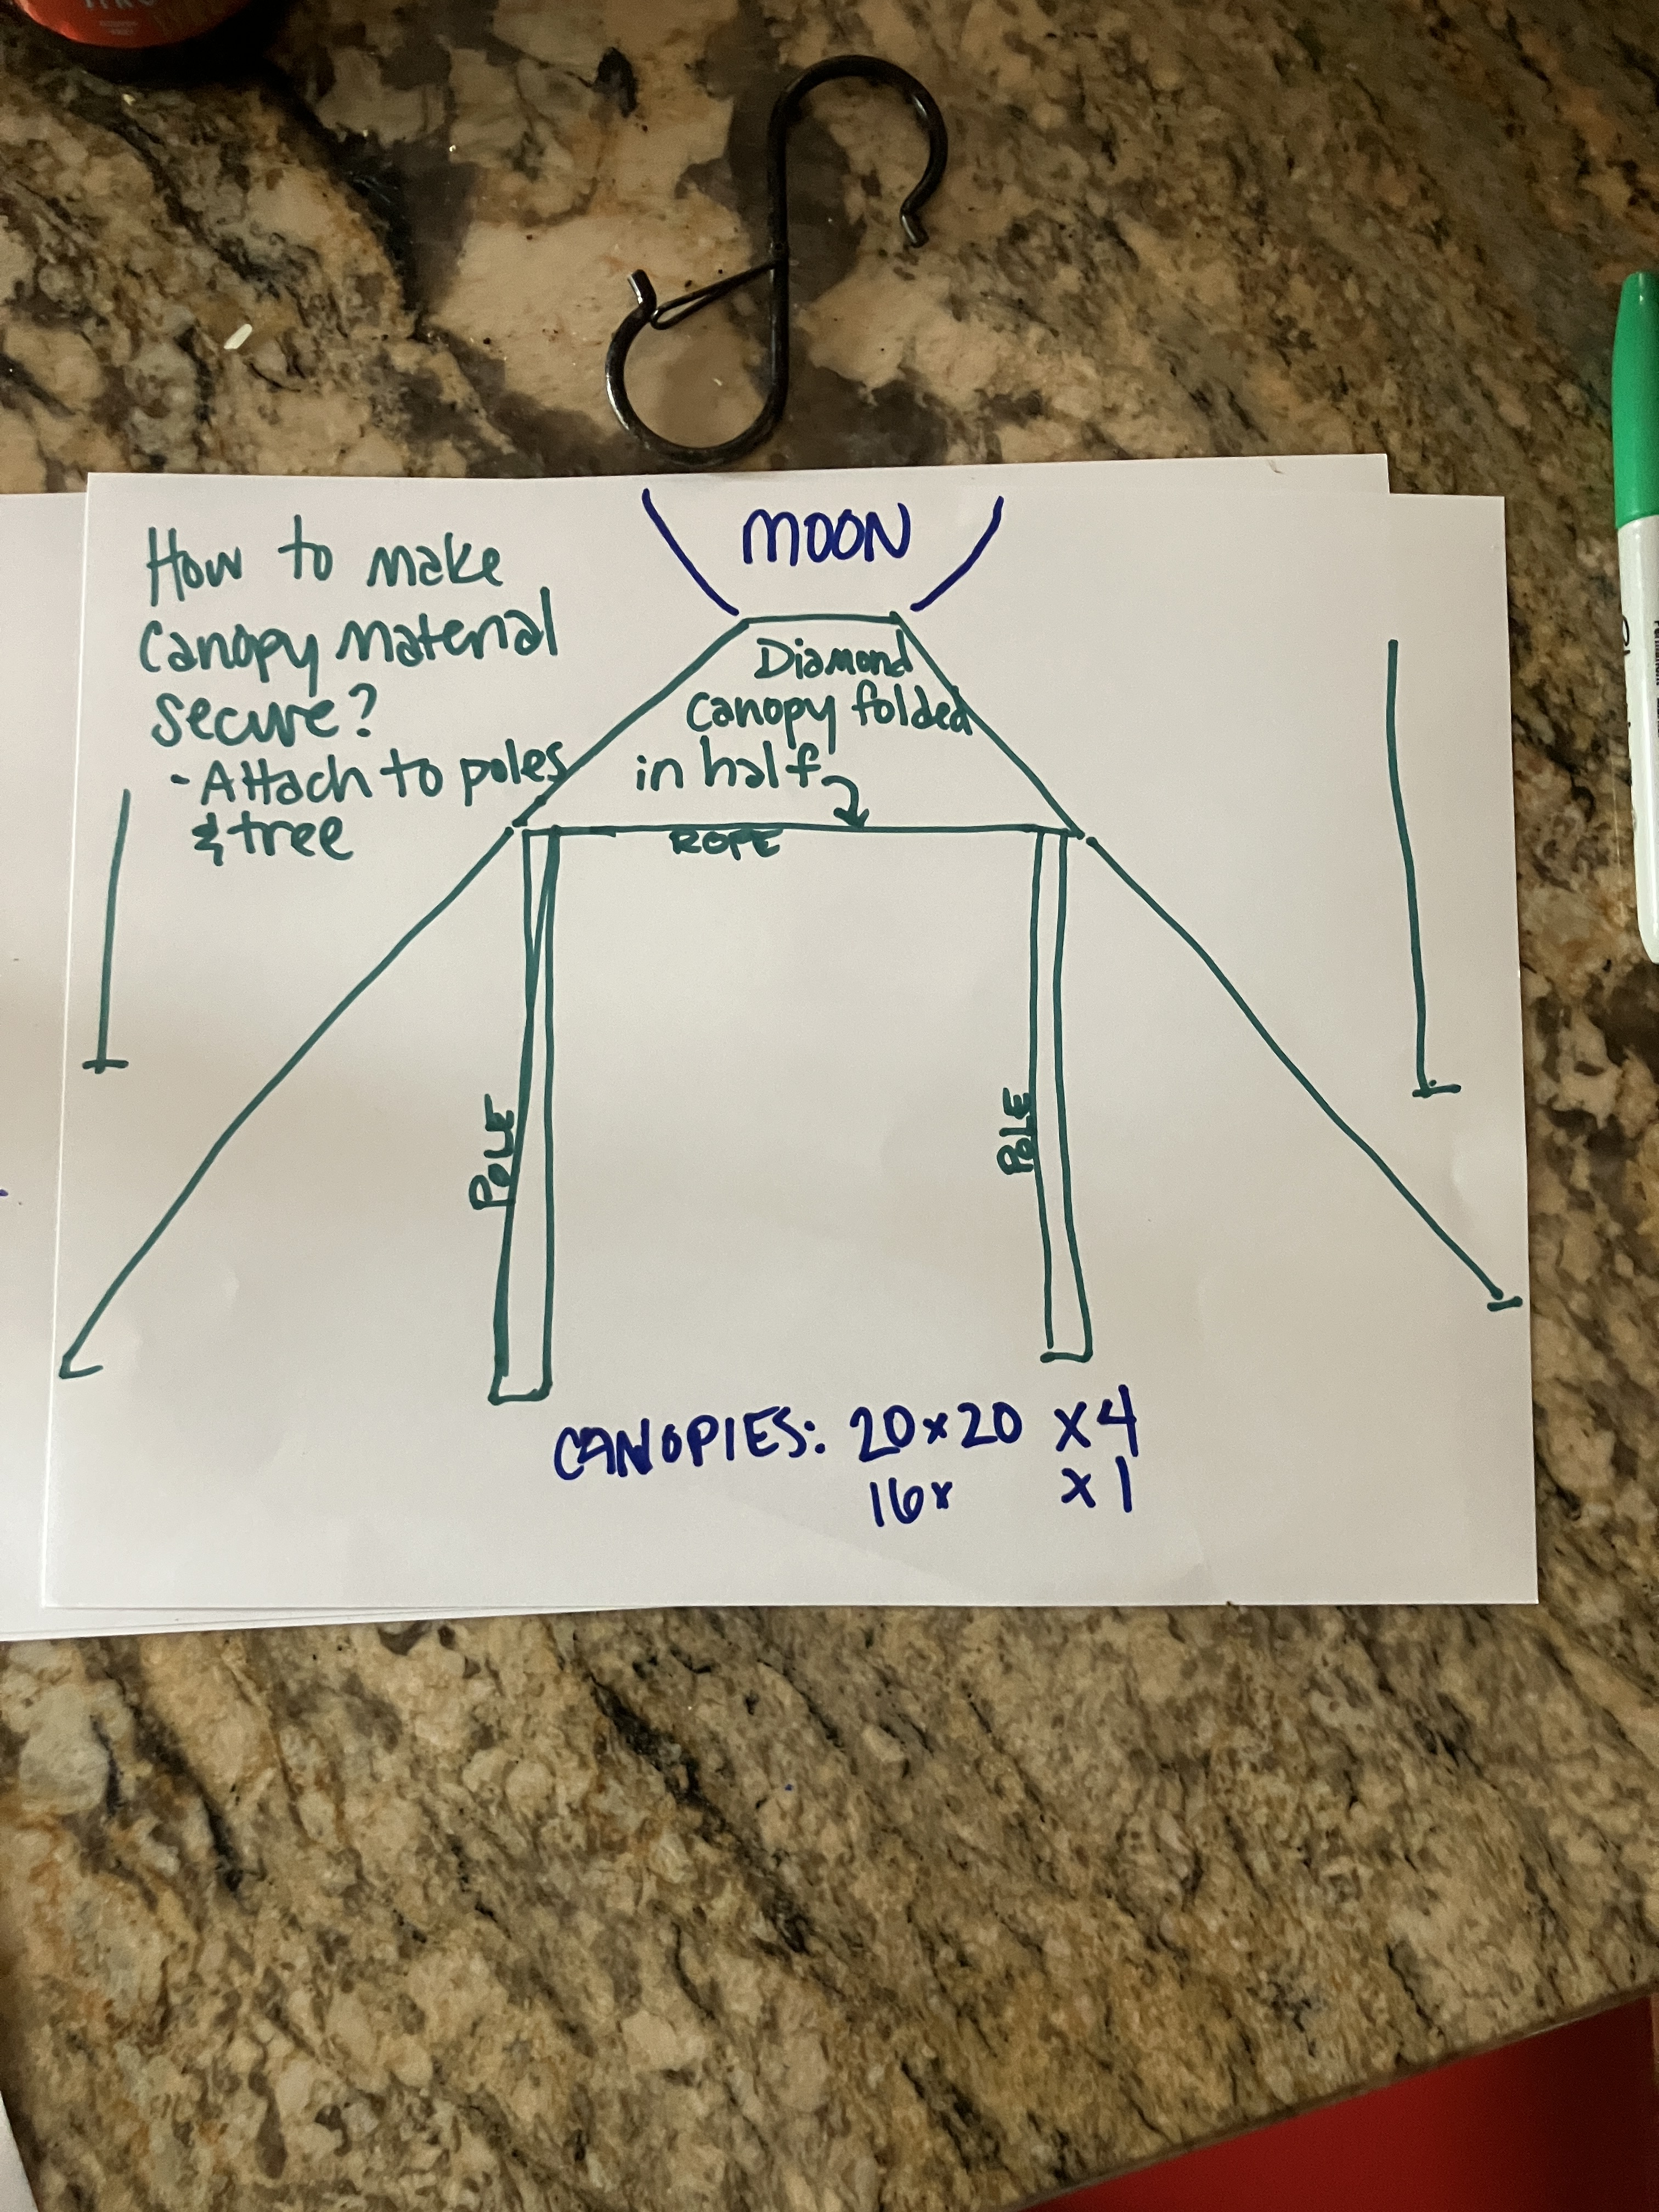 MOON
How to make
canopy material
secure?
- Attach to poles
& tree
Diamond
canopy folded
in half
ROPE
POLE
POLE
CANOPIES: 20x20 x4
16x x1